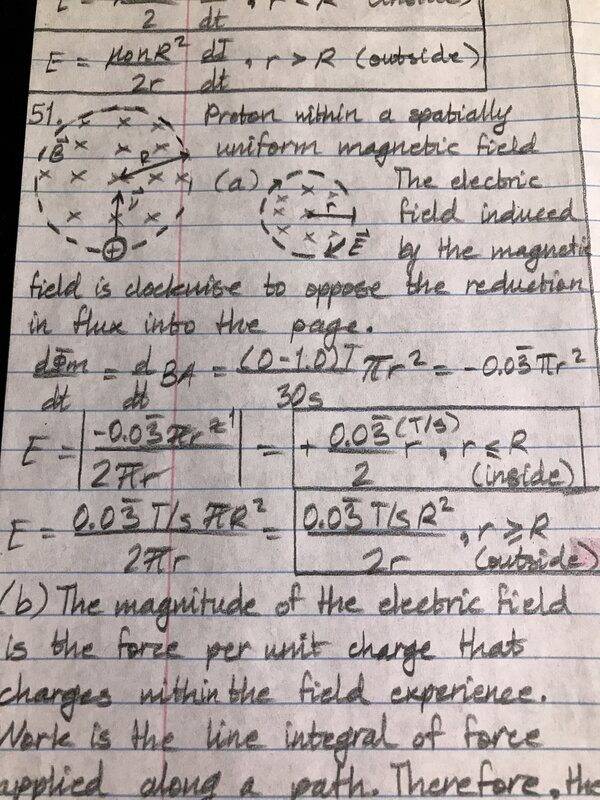 2 dt
E = μ₀nR²/2r dI/dt, r > R (outside)
51. Proton within a spatially
B R uniform magnetic field
v (a) r E The electric
field induced
by the magnetic
field is clockwise to oppose the reduction
in flux into the page.
dΦm/dt = d/dt BA = (0-1.0)T/30s πr² = -0.03̅πr²
E = |-0.03̅πr²¹/2πr| = + 0.03̅(T/s)/2 r, r ≤ R (inside)
E = 0.03̅ T/s πR²/2πr = 0.03̅ T/s R²/2r, r ≥ R (outside)
(b) The magnitude of the electric field
is the force per unit charge that
charges within the field experience.
Work is the line integral of force
applied along a path. Therefore, the